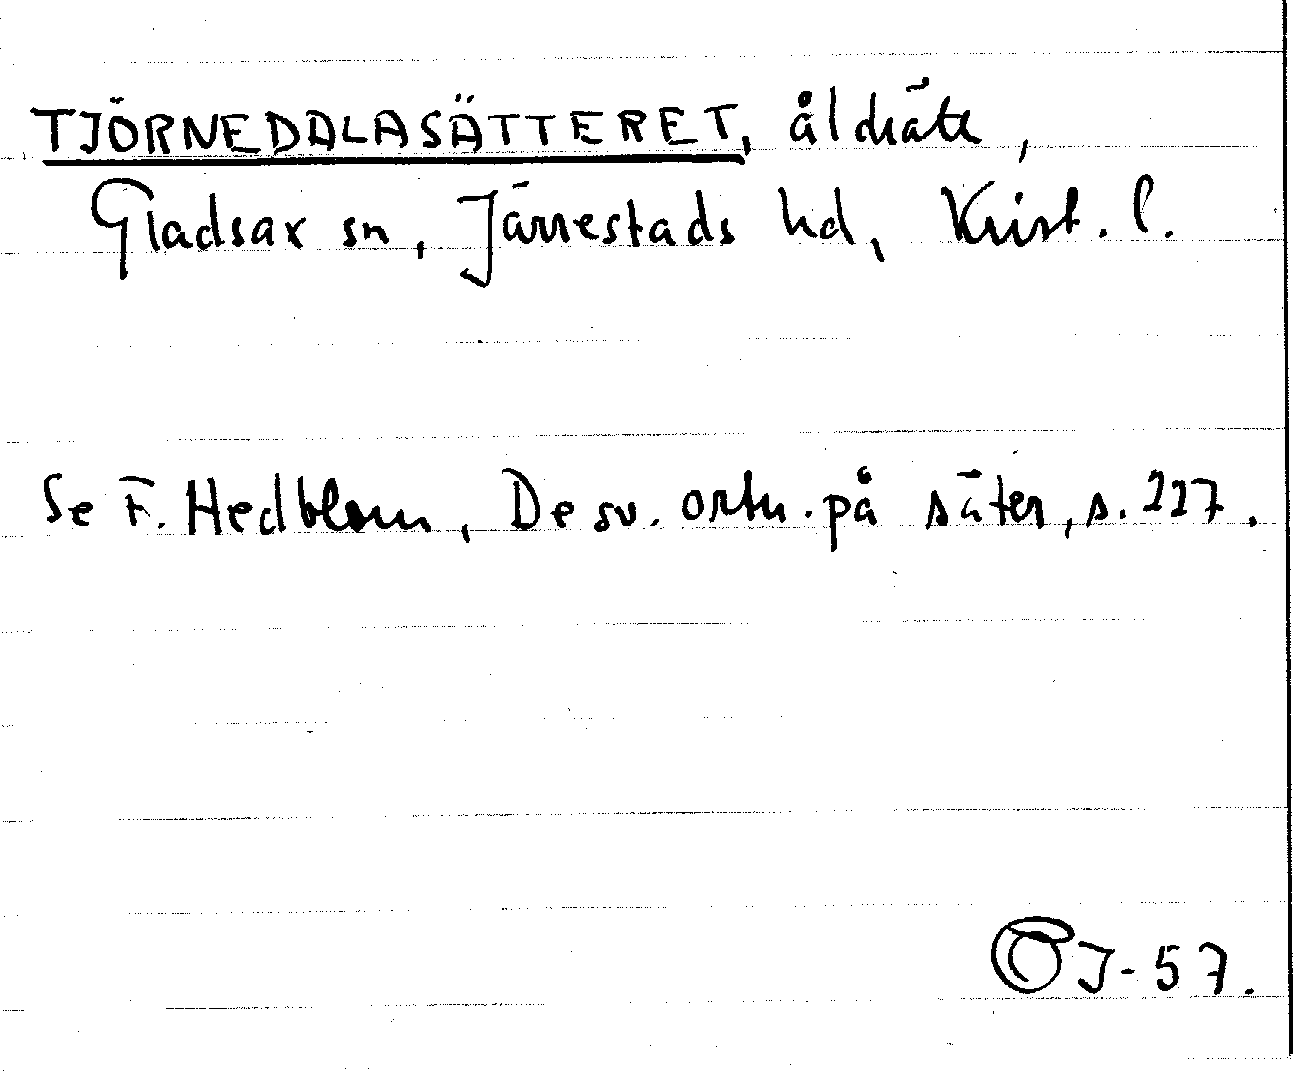 TJÖRNEDALASÄTTERET, åldräte,
Gladsax sn, Järrestads hd, Krist. l.
Se F. Hedblom, De sv. ortn. på säter, s. 227.
OJ-57.